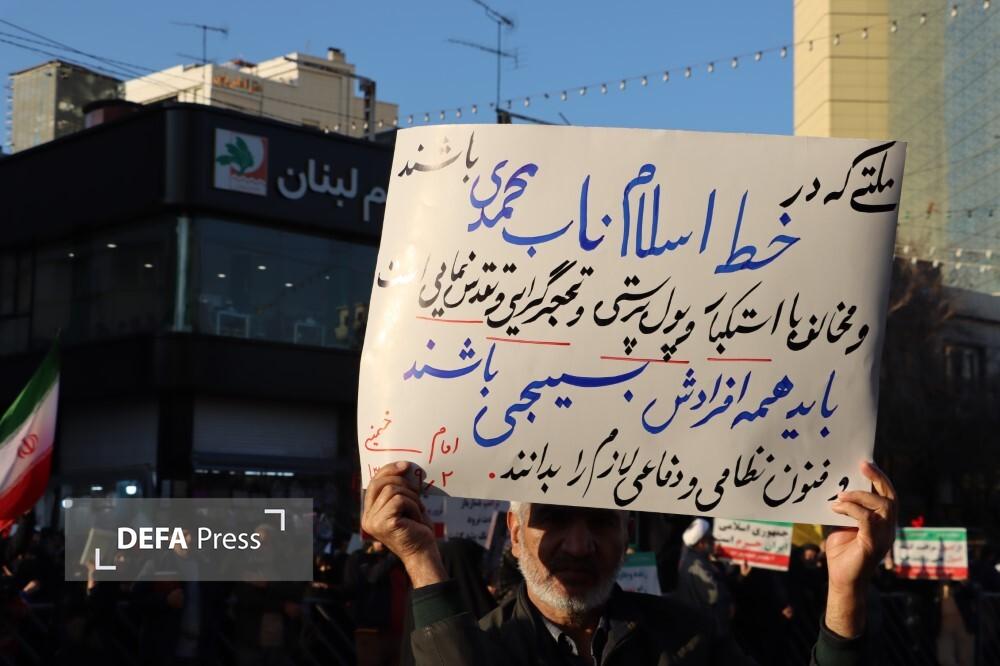 ملتی که در
خط اسلام ناب محمدی باشند
و مخالف با استکبار و پول پرستی و تحجرگرایی و تقدس نمایی است
باید همه افرادش بسیجی باشند
و فنون نظامی و دفاعی لازم را بدانند.
امام خمینی
لبنان
DEFA Press
جمهوری اسلامی
ایران حرم است